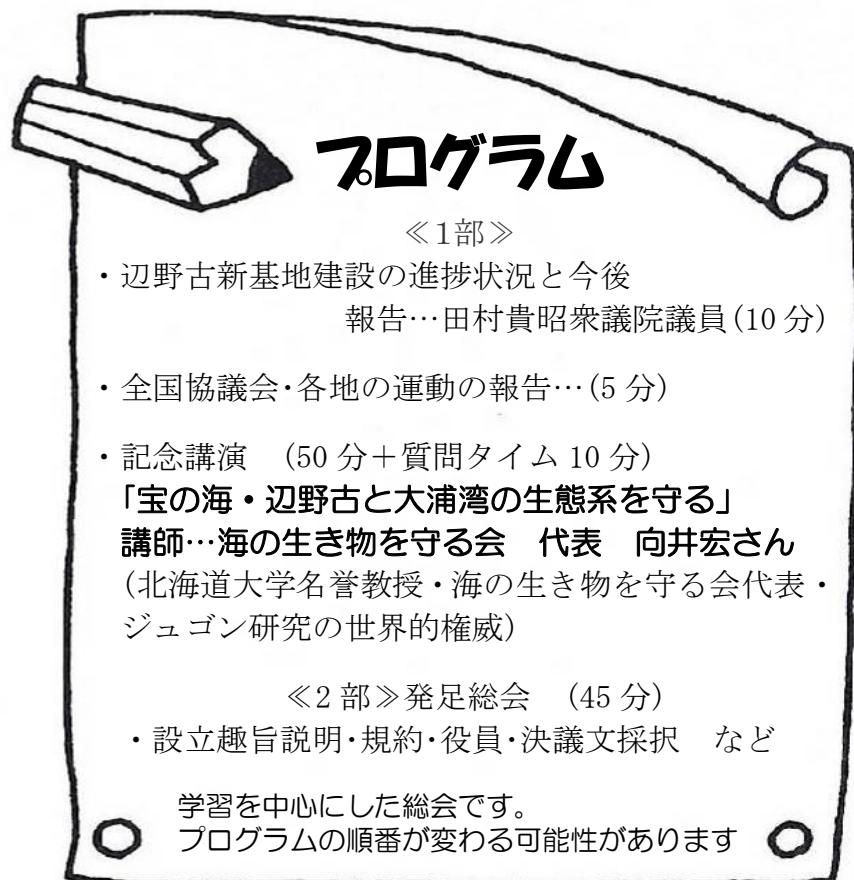 プログラム
≪1部≫
・辺野古新基地建設の進捗状況と今後
報告…田村貴昭衆議院議員(10分)
・全国協議会・各地の運動の報告…(5分)
・記念講演　(50分＋質問タイム10分)
「宝の海・辺野古と大浦湾の生態系を守る」
講師…海の生き物を守る会　代表　向井宏さん
(北海道大学名誉教授・海の生き物を守る会代表・
ジュゴン研究の世界的権威)
≪2部≫発足総会　(45分)
・設立趣旨説明・規約・役員・決議文採択　など
学習を中心にした総会です。
プログラムの順番が変わる可能性があります